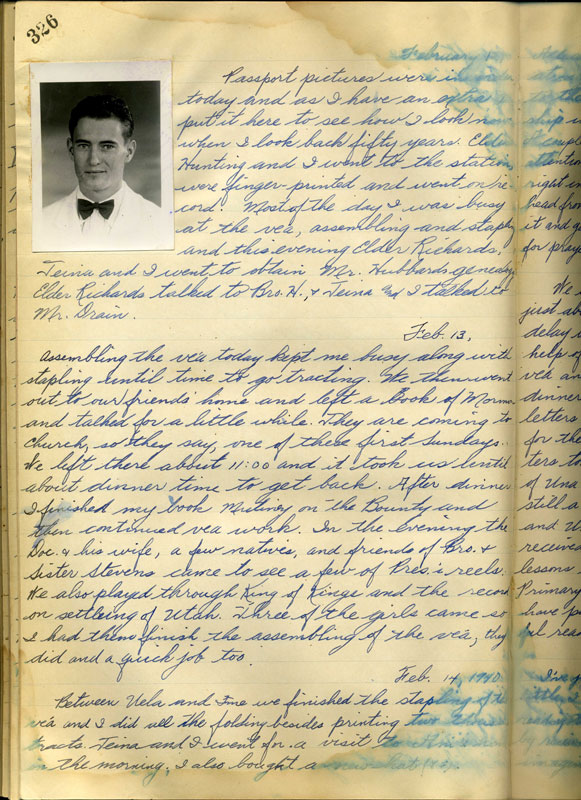 326
February
Passport pictures were in
today and as I have an extra
put it here to see how I look now
when I look back fifty years. Elder
Hunting and I went to the station
were finger-printed and went on re-
cord. Most of the day I was busy
at the vea, assembling and stapling
and this evening Elder Richards,
Teina and I went to obtain Mr. Hubbards geneaogy
Elder Richards talked to Bro. H., & Teina and I talked to
Mr. Drain.
Feb. 13,
Assembling the vea today kept me busy along with
stapling until time to go tracting. We then went
out to our friends' home and left a Book of Mormon
and talked for a little while. They are coming to
church, so they say, one of these first Sundays.
We left there about 11:00 and it took us until
about dinner time to get back. After dinner
I finished my book Mutiney on the Bounty and
then continued vea work. In the evening the
Doc. & his wife, a few natives, and friends of Bro. &
Sister Stevens came to see a few of Pres.'s reels.
We also played through King of Kings and the record
on settleing of Utah. Three of the girls came so
I had them finish the assembling of the vea; they
did and a quick job too.
Feb. 14, 1940
Between Uela and me we finished the stapling of the
vea and I did all the folding besides printing two
tracts. Teina and I went for a visit to
in the morning; I also bought a
ship
attention
right
head from
it and
for
We
just
delay
help of
vea
dinner
letters
for the
ters
of Una
still a
and
received
lessons
Primary
have
ful
I've